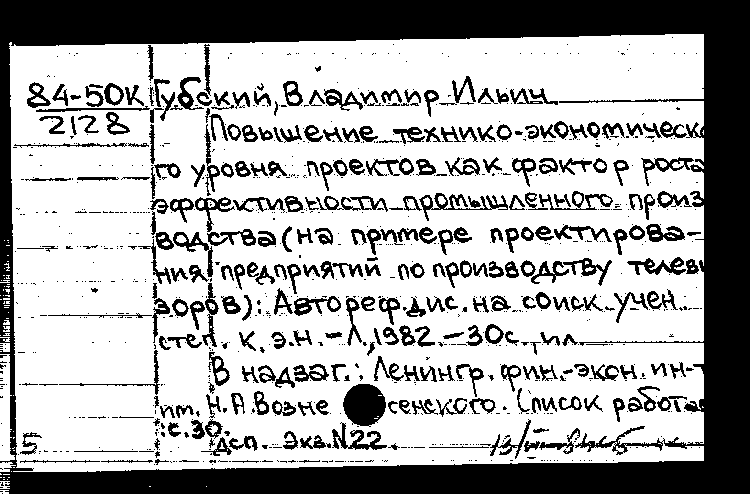 84-50К Губский, Владимир Ильич
2128
Повышение технико-экономическо
го уровня проектов как фактор роста
эффективности промышленного произ
водства (на примере проектирова-
ния предприятий по производству телеви
зоров): Автореф. дис. на соиск. учен.
степ. к. э. н. - Л., 1982. - 30с., ил.
В надзаг.: Ленингр. фин.-экон. ин-т
им. Н.А. Возне сенского. Список работ
: с. 30.
Дсп. Экз. N22.
5